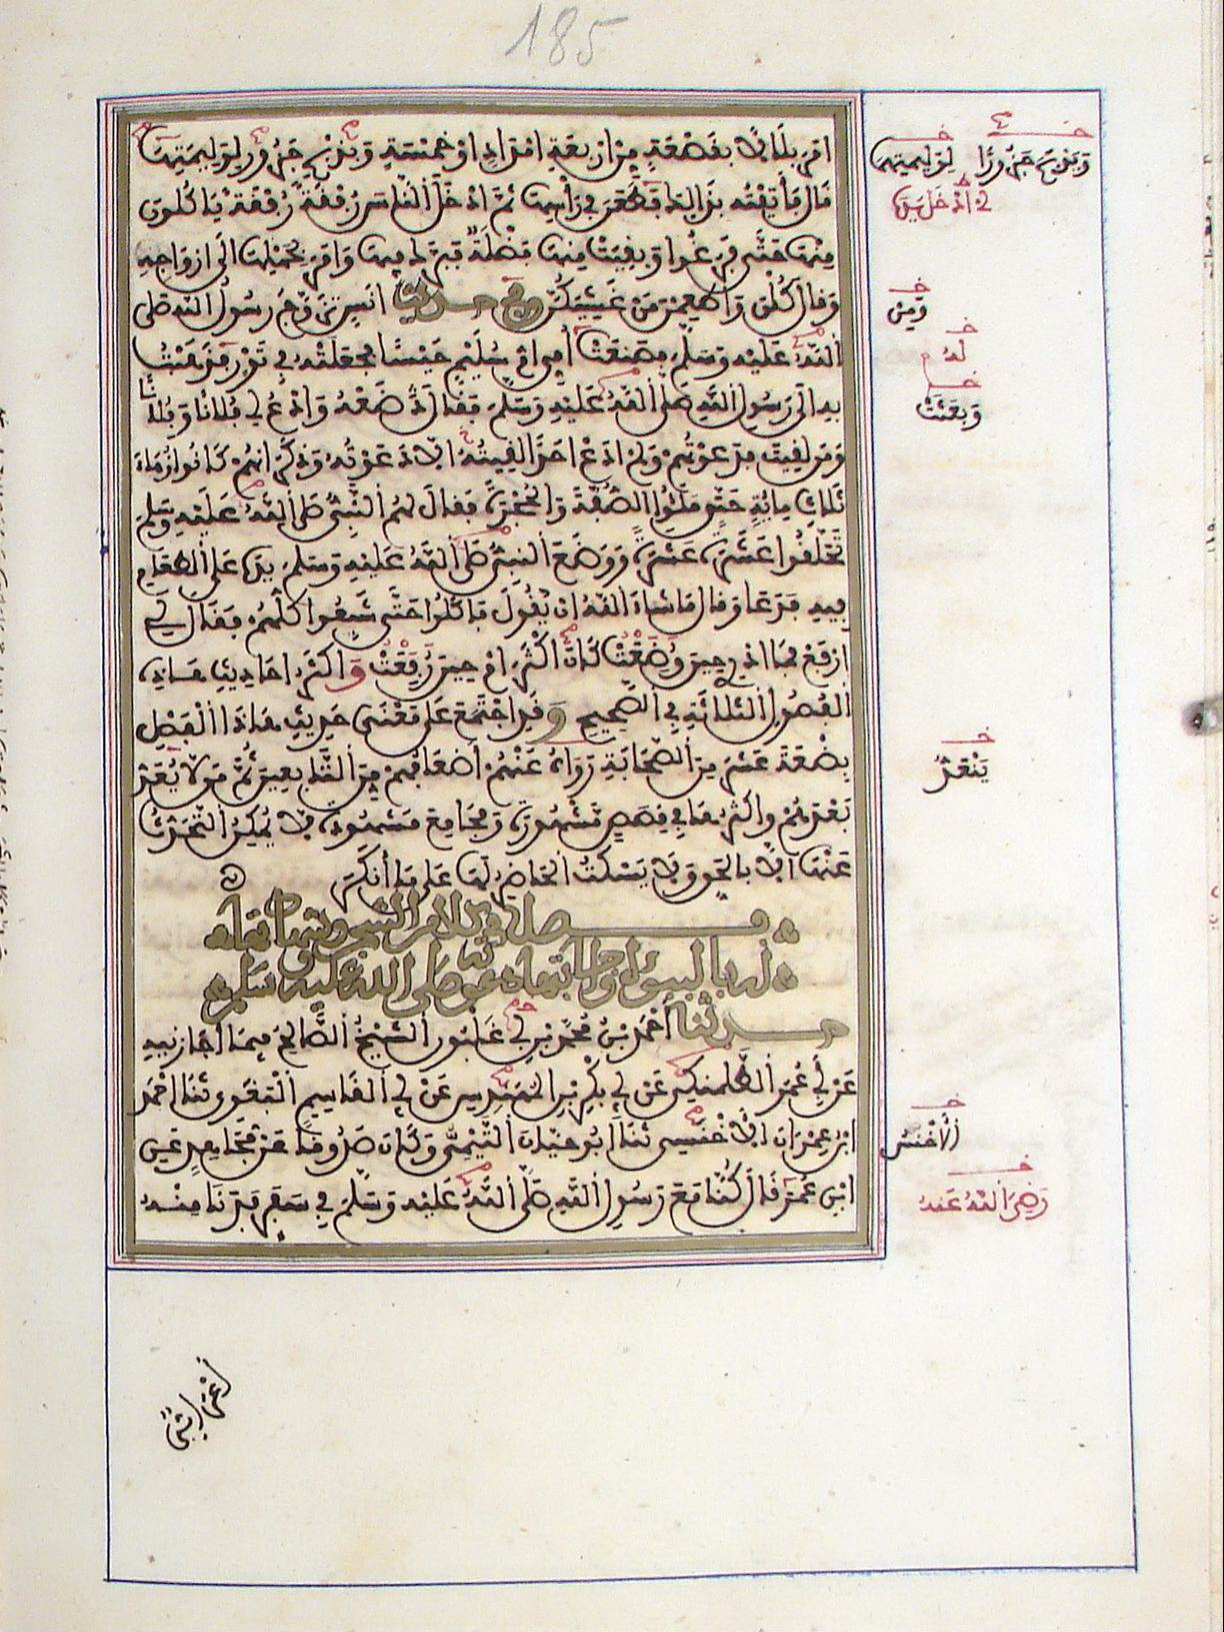 185
امر بلالا بقصعة من اربعة امداد او خمسة ويذبح جزور لوليمتها
قال فأتيته بذالك فطعن في رأسها ثم ادخل الناس رفقة رفقة ياكلون
منها حتى فرغوا وبقيت منها فضلة فبرك فيها وامر بحملها الى ازواجه
وقال كلن واطعمن من غشيكن وفي حديث انس تزوج رسول الله صلى
الله عليه وسلم فصنعت امي ام سليم حيسا فجعلته في تور فذهبت
به الى رسول الله صلى الله عليه وسلم فقال ضعه وادع لي فلانا وفلانا
ومن لقيت فدعوتهم ولم ادع احدا لقيته الا دعوته وذكر انهم كانوا زهاء
ثلاث مائة حتى ملئوا الصفة والحجرة فقال لهم النبي صلى الله عليه وسلم
تحلقوا عشرة عشرة ووضع النبي صلى الله عليه وسلم يده على الطعام
فيه فدعا وقال ما شاء الله ان يقول فاكلوا حتى شبعوا كلهم فقال لي
ارفع فما ادري حين وضعت كانت اكثر ام حين رفعت واكثر احاديث هذه
الفصول الثلاثة في الصحيح وقد اجتمع على معنى حديث هذا الفصل
بضعة عشر من الصحابة رواه عنهم أضعافهم من التابعين ثم من لا يعد
بعدهم واكثرها في قصص مشهورة ومجامع مشهودة فلا يمكن التحدث
عنها الا بالحق ولا يسكت الحاضر لها على ما أنكر
فصل في كلام الشجر وشهادتها
له بالنبوة واجابتها دعوته صلى الله عليه وسلم
حدثنا احمد بن محمد بن غلبون الشيخ الصالح فيما اجازنيه
عن أبي عمر الطلمنكي عن أبي بكر بن المهندس عن أبي القاسم البغوي ثنا احمد
ابن عمران الاخنسي ثنا ابو حيان التيمي وكان صدوقا عن مجاهد عن
ابن عمر قال كنا مع رسول الله صلى الله عليه وسلم في سفر فدنا منه
ويذبح جزورا لوليمتها
ومن
له
وبعثت
ينعد
الاخنس
رضي الله عنه
أعرابي